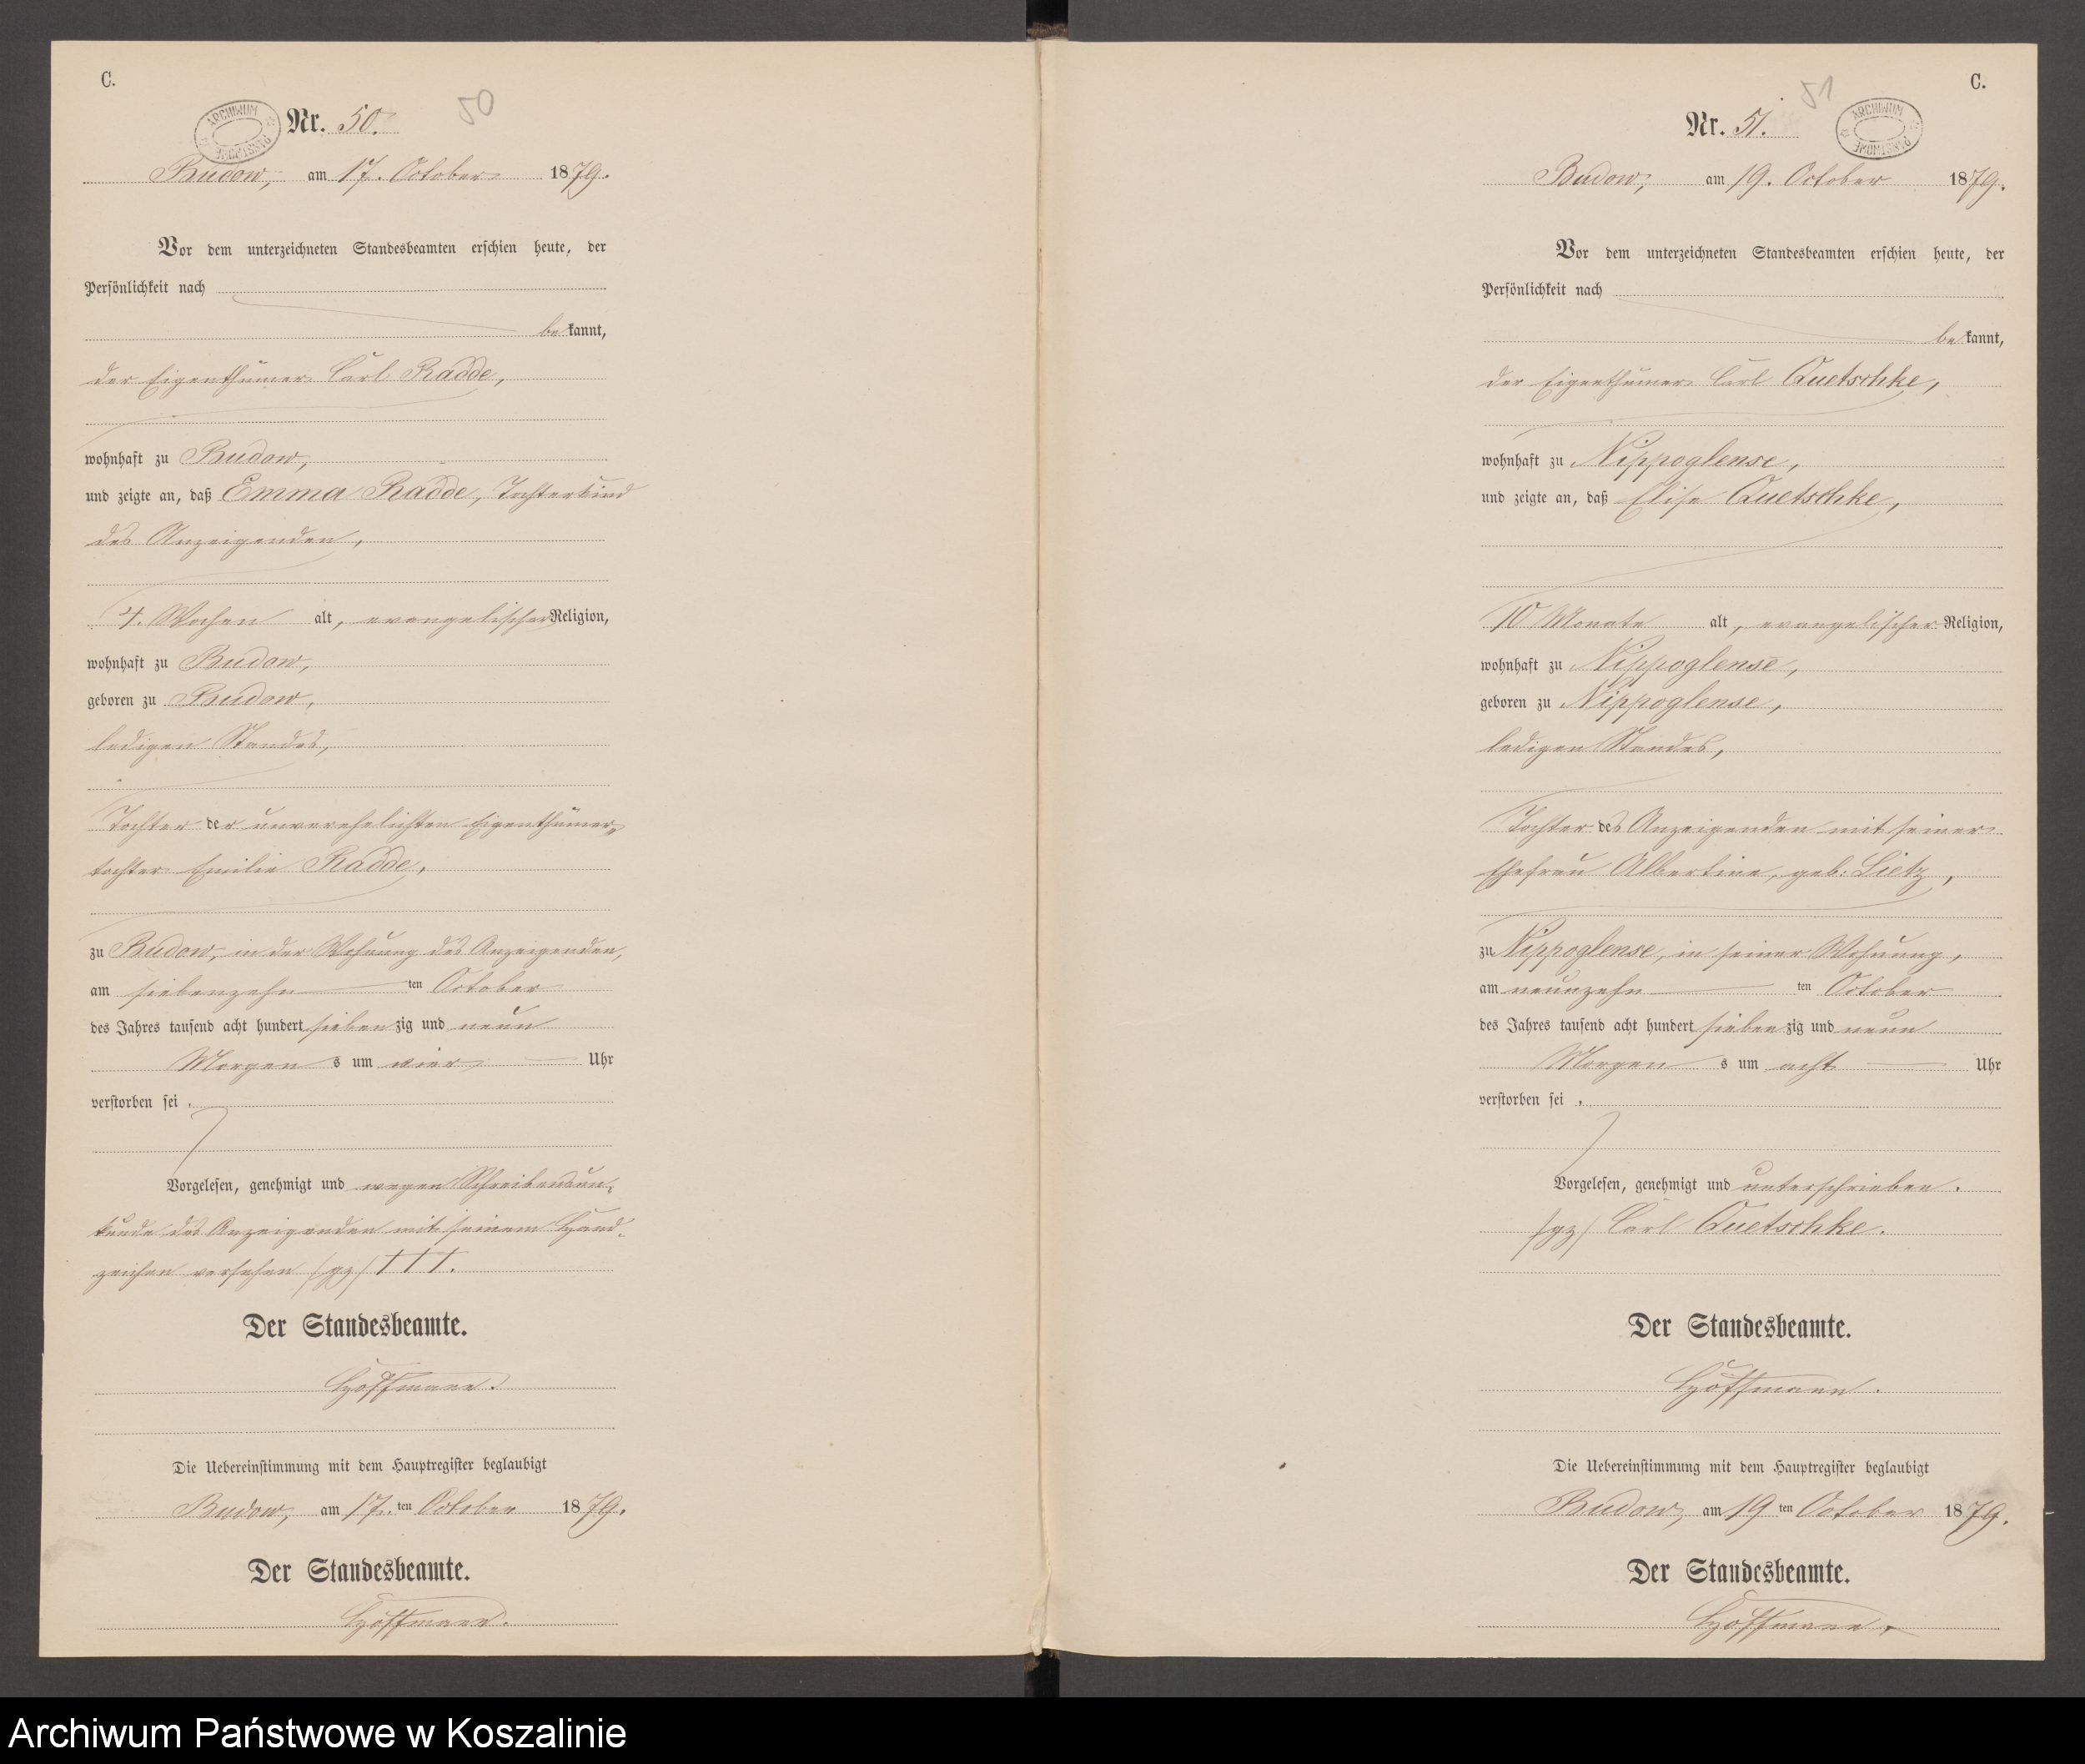 C.
ARCHIWUM PAŃSTWOWE
Nr. 50.
50
Budow, am 17. October 1879.
Vor dem unterzeichneten Standesbeamten erschien heute, der
Persönlichkeit nach
bekannt,
der Eigenthümer Carl Radde,
wohnhaft zu Budow,
und zeigte an, daß Emma Radde, Tochterkind
des Anzeigenden,
4 Wochen alt, evangelischer Religion,
wohnhaft zu Budow,
geboren zu Budow,
ledigen Standes,
Tochter der unverehelichten Eigenthümer-
tochter Emilie Radde,
zu Budow, in der Wohnung des Anzeigenden,
am siebenzehnten October
des Jahres tausend acht hundert siebenzig und neun
Morgens um vier Uhr
verstorben sei.
Vorgelesen, genehmigt und wegen Schreibensun-
kunde des Anzeigenden mit seinem Hand-
zeichen versehen /gz/ †††.
Der Standesbeamte.
Hoffmann.
Die Uebereinstimmung mit dem Hauptregister beglaubigt
Budow, am 17.ten October 1879.
Der Standesbeamte.
Hoffmann.
C.
51
ARCHIWUM PAŃSTWOWE
Nr. 51.
Budow, am 19. October 1879.
Vor dem unterzeichneten Standesbeamten erschien heute, der
Persönlichkeit nach
bekannt,
der Eigenthümer Carl Quetschke,
wohnhaft zu Nippoglense,
und zeigte an, daß Elise Quetschke,
10 Monate alt, evangelischer Religion,
wohnhaft zu Nippoglense,
geboren zu Nippoglense,
ledigen Standes,
Tochter des Anzeigenden mit seiner
Ehefrau Albertine, geb. Lietz,
zu Nippoglense, in seiner Wohnung,
am neunzehnten October
des Jahres tausend acht hundert siebenzig und neun
Morgens um acht Uhr
verstorben sei.
Vorgelesen, genehmigt und unterschrieben.
/gz/ Carl Quetschke.
Der Standesbeamte.
Hoffmann.
Die Uebereinstimmung mit dem Hauptregister beglaubigt
Budow, am 19ten October 1879.
Der Standesbeamte.
Hoffmann.
Archiwum Państwowe w Koszalinie